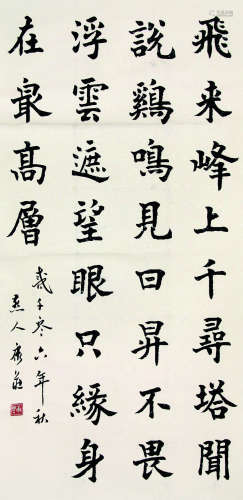 飛来峰上千尋塔聞
說鷄鳴見日昇不畏
浮雲遮望眼只緣身
在最高層
千零六年秋
燕人